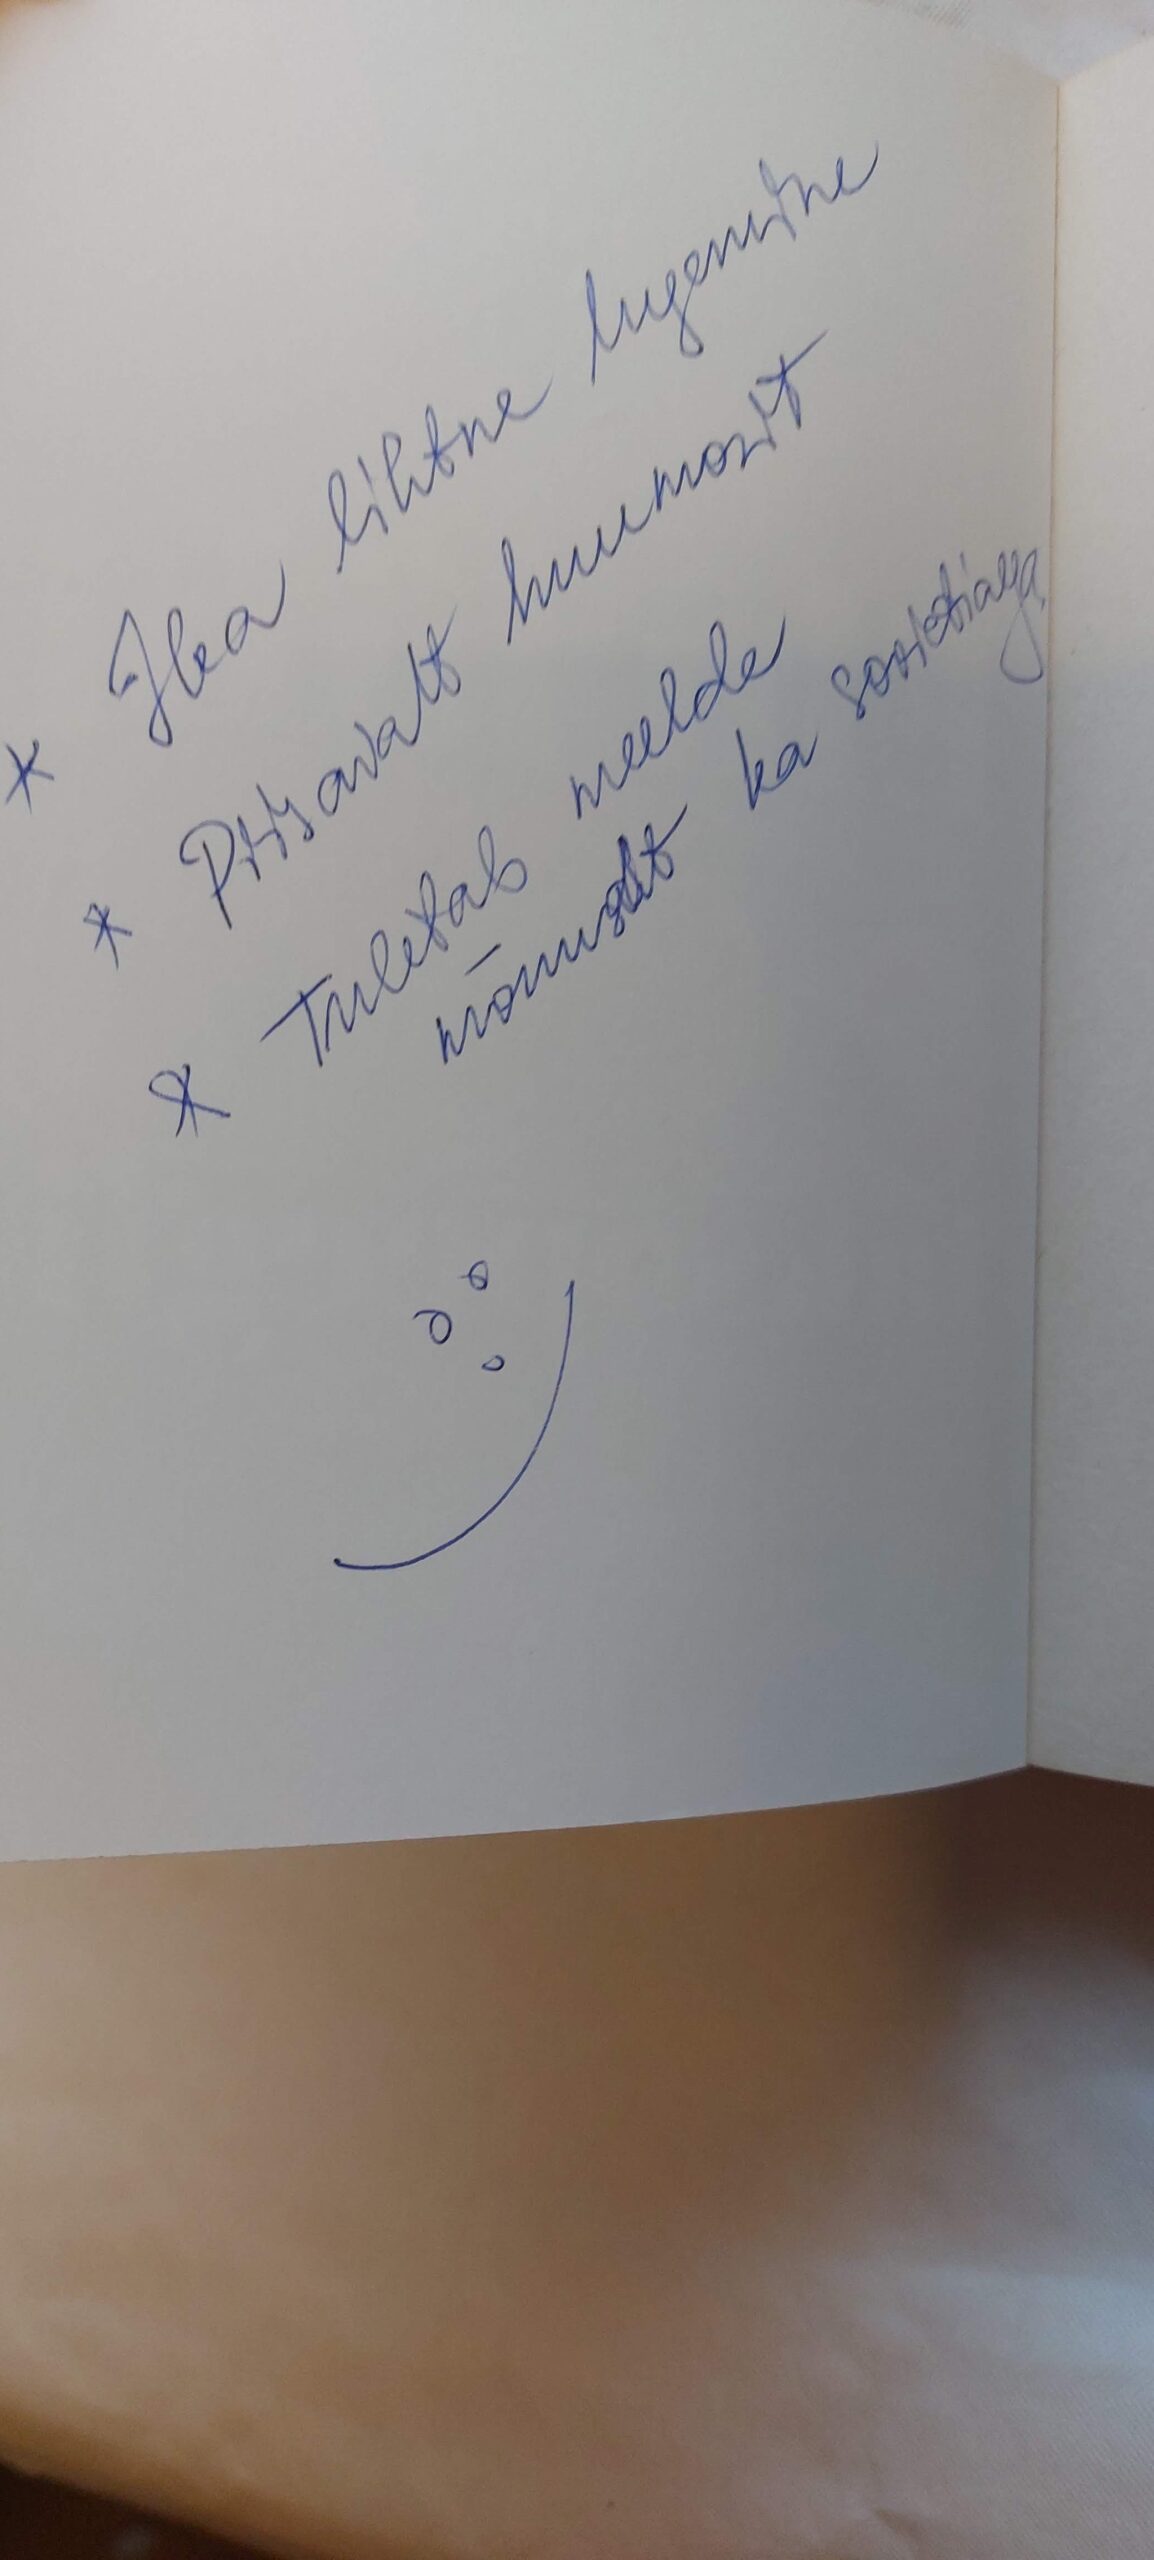 * Hea lihtne lugemine
* Piisavalt huumorit
* Tuletab meelde
mõnusalt ka sovietiaega